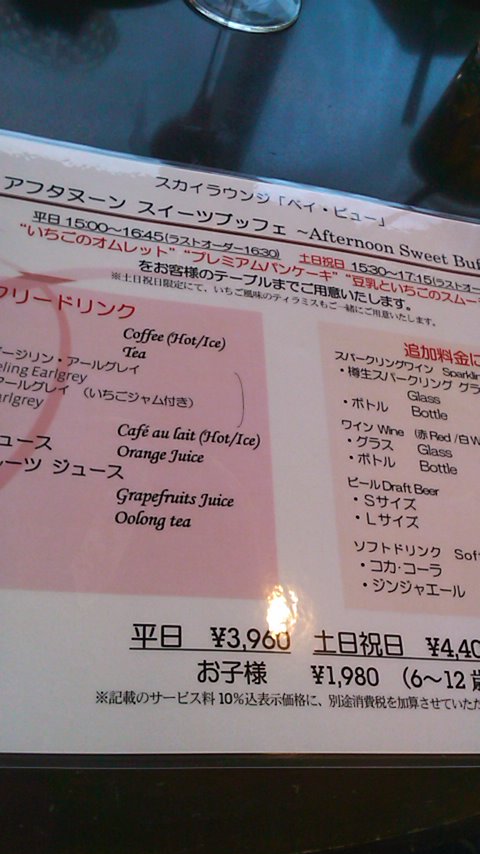 スカイラウンジ「ベイ・ビュー」
アフタヌーン スイーツブッフェ ~Afternoon Sweet Buf
平日 15:00~16:45(ラストオーダー16:30) 土日祝日 15:30~17:15(ラストオー
"いちごのオムレット" "プレミアムパンケーキ" "豆乳といちごのスムー
をお客様のテーブルまでご用意いたします。
※土日祝日限定にて、いちご風味のティラミスもご一緒にご用意いたします。
フリードリンク
Coffee (Hot/Ice)
Tea
ージリン・アールグレイ
eling Earlgrey
アールグレイ (いちごジャム付き)
arlgrey
Café au lait (Hot/Ice)
ュース Orange Juice
ルーツ ジュース
Grapefruits Juice
Oolong tea
追加料金に
スパークリングワイン Sparklin
・樽生スパークリング グラ
Glass
・ボトル Bottle
ワイン Wine (赤Red/白W
・グラス Glass
・ボトル Bottle
ビール Draft Beer
・Sサイズ
・Lサイズ
ソフトドリンク Sof
・コカ・コーラ
・ジンジャエール
平日 ¥3,960 土日祝日 ¥4,40
お子様 ¥1,980 (6~12歳
※記載のサービス料10%込表示価格に、別途消費税を加算させていただ